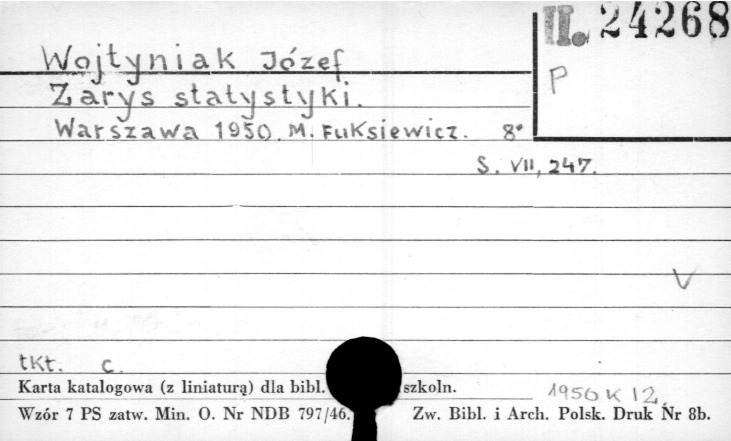 II. 24268
P
Wojtyniak Józef
Zarys statystyki.
Warszawa 1950. M. Fuksiewicz. 8°
S. VII, 247.
V
tkt. c.
Karta katalogowa (z liniaturą) dla bibl. szkoln.
1950 K 12.
Wzór 7 PS zatw. Min. O. Nr NDB 797/46. Zw. Bibl. i Arch. Polsk. Druk Nr 8b.